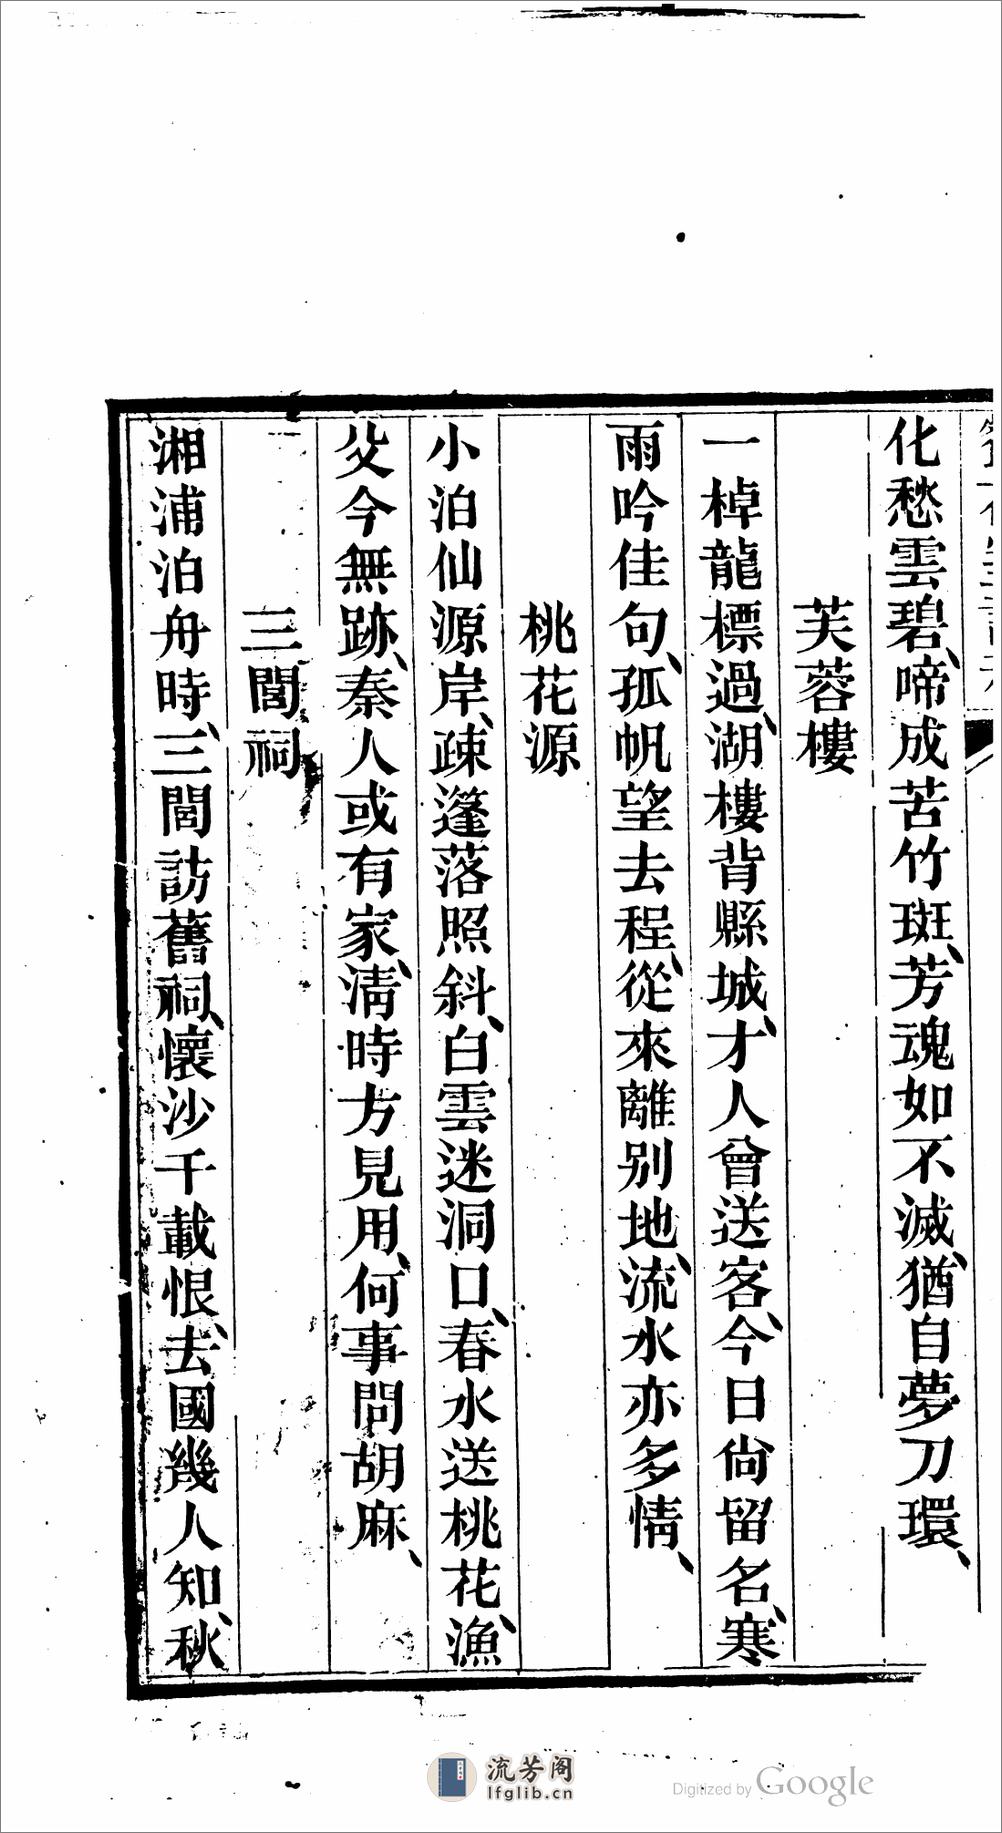 化愁雲碧、啼成苦竹斑、芳魂如不滅、猶自夢刀環、
芙蓉樓
一棹龍標過、湖樓背縣城、才人曾送客、今日尙留名、寒
雨吟佳句、孤帆望去程、從來離别地、流水亦多情、
桃花源
小泊仙源岸、疎蓬落照斜、白雲迷洞口、春水送桃花、漁
父今無跡、秦人或有家、淸時方見用、何事問胡麻、
三閭祠
湘浦泊舟時、三閭訪舊祠、懷沙千載恨、去國幾人知、秋
流芳阁
lfglib.cn
Digitized by Google